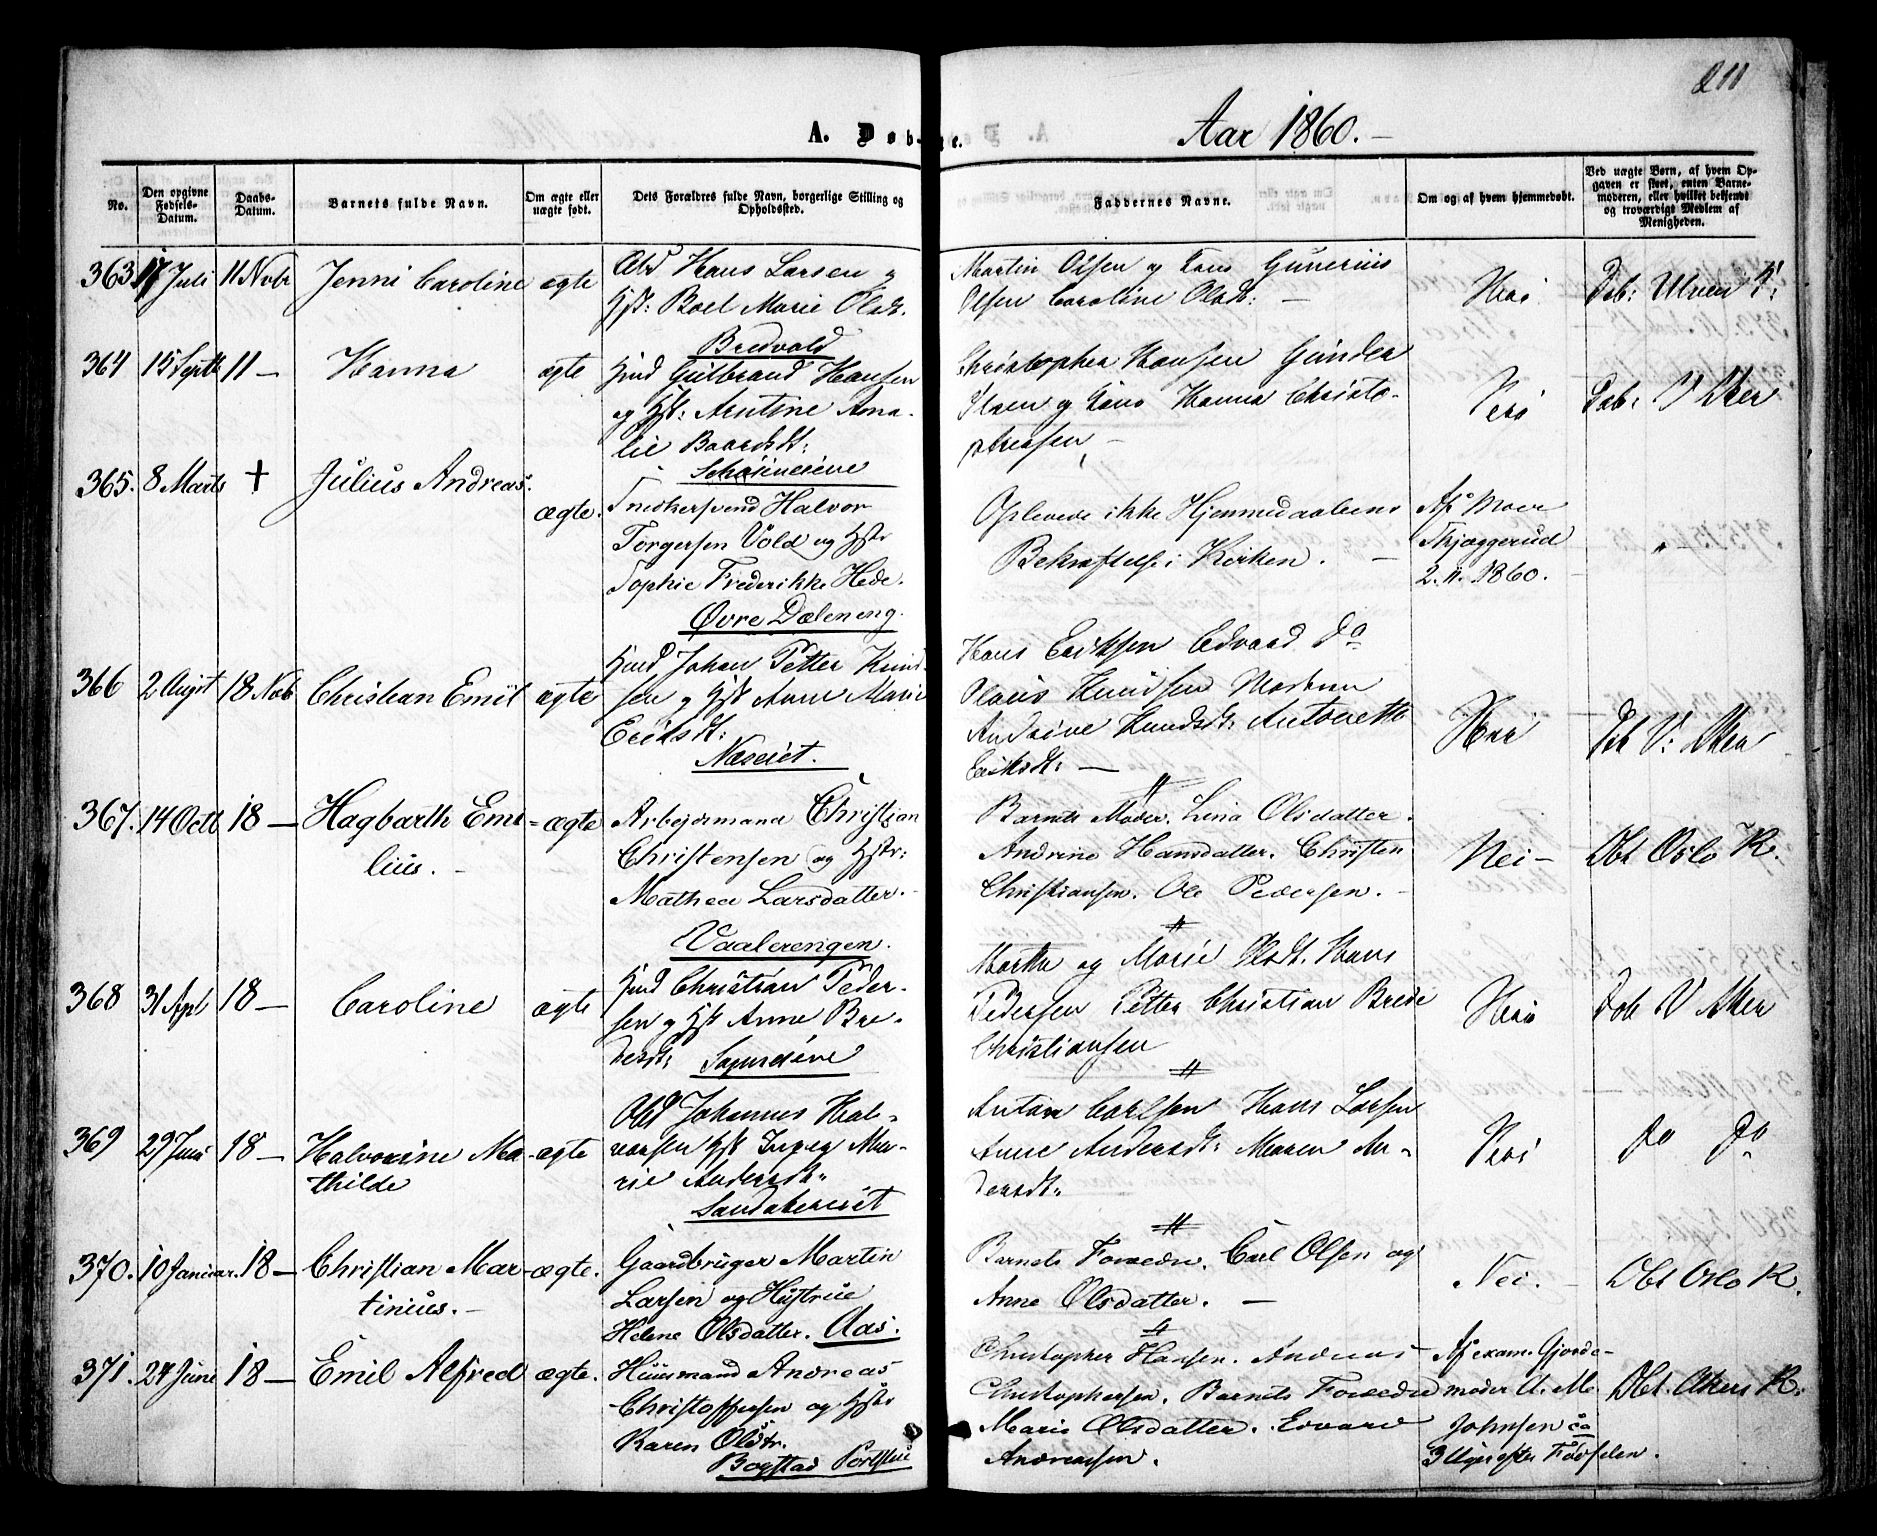 211
A. Døb-te. Aar 1860.-
No.
Den opgivne Fødsels-Datum.
Daabs-Datum.
Barnets fulde Navn.
Om ægte eller uægte født.
Dets Forældres fulde Navn, borgerlige Stilling og Opholdssted.
Faddernes Navne.
Om og af hvem hjemmedøbt.
Ved uægte Børn, af hvem Opgaven er skeet, enten Barnemoderen, eller hvilket bekjendt og troværdigt Medlem af Menigheden.
363 17 Juli 11 Novbr Jenni Caroline ægte
Hans Larsen og
Hst: Boel Marie Olsdt.
Bredvold
Martin Olsen og Gunerius
Olsen Caroline Olsdt: —
Nei
Døb: Ulven
364 15 Septb 11 — Hanna ægte
Hmd Gulbrand Hansen
og Hst: Amalie Baardsdt:
Christopher Hansen Gunder
Olsen og Hanna Christophersen —
Nei
Døb: V Aker
365. 8 Marts + Julius Andreas. ægte.
Snedkersvend Halvor
Torgersen Vold og Hstr
Sophie Frederikke Hede.
Øvre Dæleneng.
Oplevede ikke Hjemmedaabens
Bekræftelse i Kirken. —
Af Moer
Thjæggerud
2. 11. 1860.
366 2 Augst 18 Novb Christian Emil ægte
Hmd Johan Petter Knud-
sen og Hst Anne Marie
Eriksdt:
Næseiet.
Hans Eriksen Edvard Do
Olaus Knudsen
Knudsdt: Antonette
Eriksdt: —
Nei
Døb V: Aker
367. 14 Octb 18 — Hagbarth Emi-
lius. -
ægte
Arbejdsmand Christian
Christensen og Hstr:
Mathea Larsdatter.
Vaalerengen.
Barnets Moder. Lina Olsdatter.
Andrine Hansdatter. Christen
Christiansen. Ole Pedersen. -
Nei —
Dbt Oslo K.
368 31 Apl 18 — Caroline ægte
Hmd Christian Peder-
sen og Hst Anne Bre-
desdt:
Martha og Marie Olsdt. Hans
Pedersen Petter Christian Brede
Christiansen
Nei
Døb V Aker
369 29 Juni 18 — Halvorine Ma-
thilde
ægte
Johannes Hal-
vorsen Hst Ingeg Ma-
rie Andersdt:
Sandakereiet
Anton Carlsen Hans Larsen
Anne Andersdt: Maren An-
dersdt:
Nei
Do Do
370. 10 Januar. 18 — Christian Mar-
tinius. -
ægte.
Gaardbruger Martin
Larsen og Hustrue
Helene Olsdatter. Aas.
Barnets Forældre. Carl Olsen og
Anne Olsdatter. —
Nei. —
Dbt Oslo K.
371. 24 Juni 18 — Emil Alfred ægte.
Huusmand Andreas
Christoffersen og Hstr
Karen Olsdtr.
Bogstad
Christopher Hansen. Andreas
Christophersen. Barnets Forældre
Maris Olsdatter. Edvard
Andreassen.
Af exam. Gjorde-
moder A. M.
Johnsen ca
3 Uger efter Fødselen.
Dbt. Akers K.